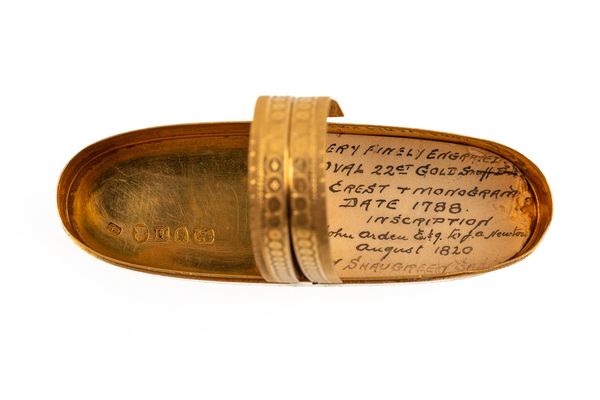 ERY FINELY ENGRAVED
OVAL 22CT GOLD Snuff
CREST + MONOGRAM
DATE 1788.
INSCRIPTION
John Arden Esq. to J.A. Newton
August 1820
SHAUGREEN